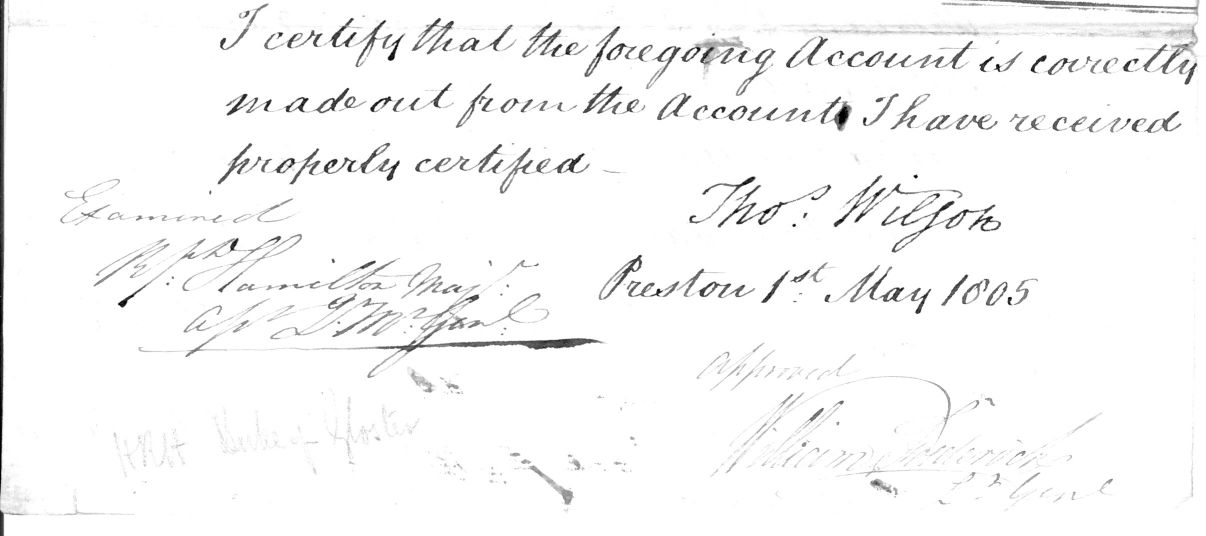 I certify that the foregoing Account is correctly
made out from the Account I have received
properly certified –
Thos. Wilson
Examined
Hamilton Majr.
Preston 1st May 1805
Genl
Approved
HRH Duke of Gloster
William Frederick
Lt Genl